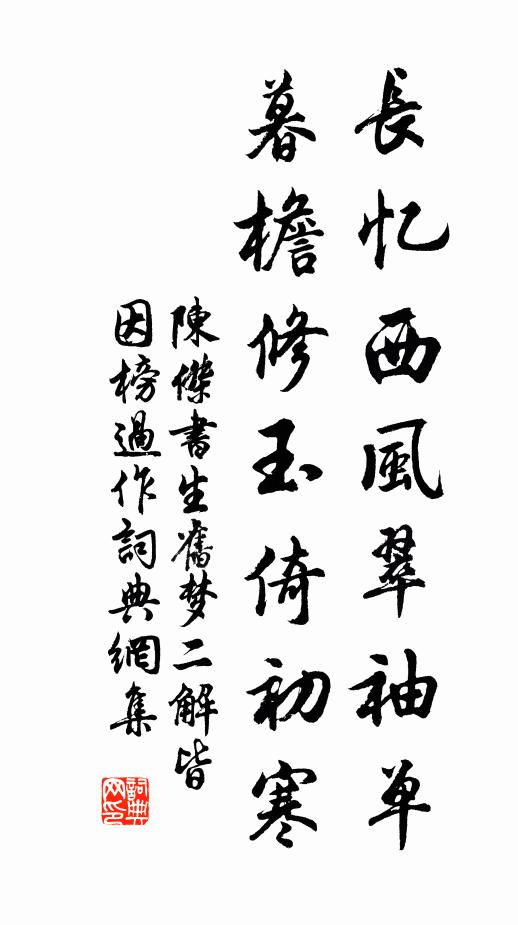 長忆西風翠袖单
暮檐修玉倚初寒
陳傑書生舊梦二解皆
因榜過作詞典網集
詞典网印